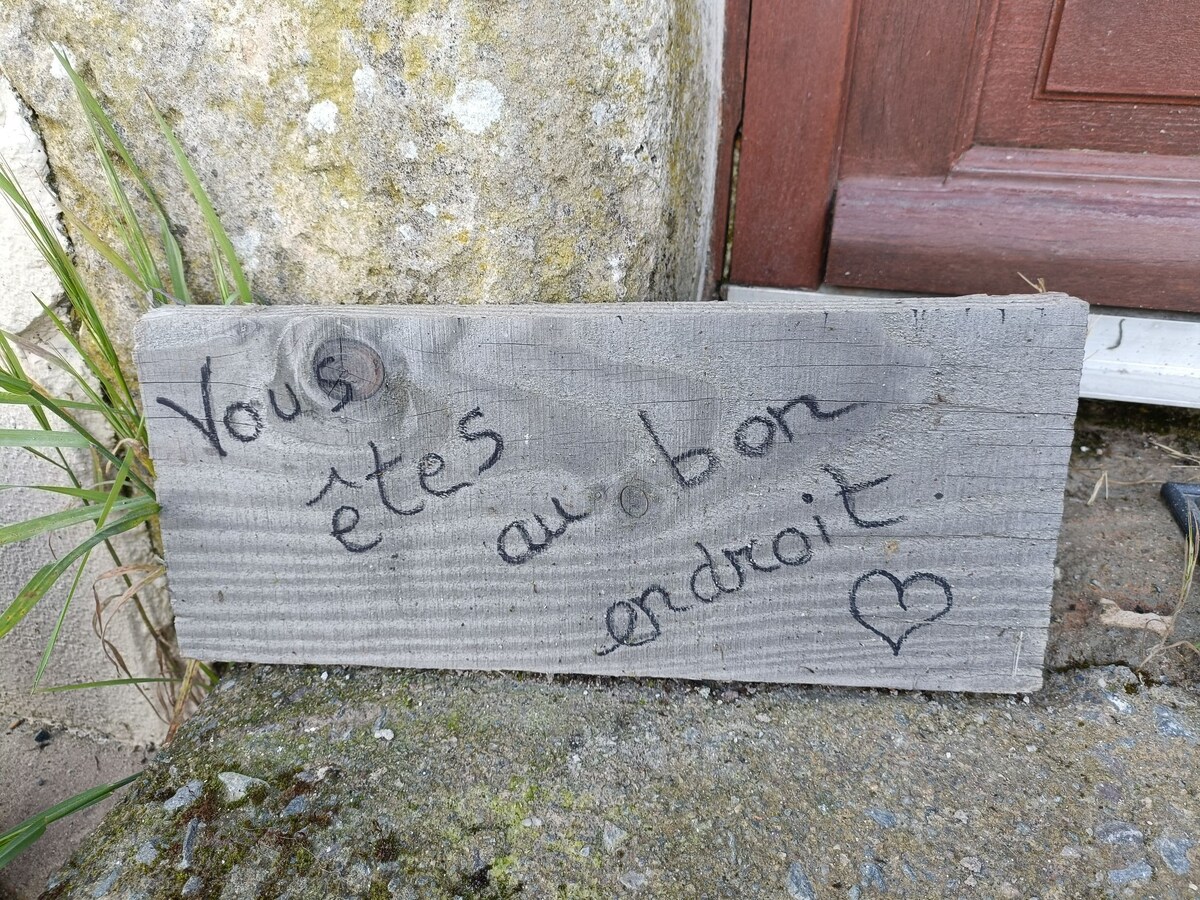 Vous
êtes
au bon
endroit